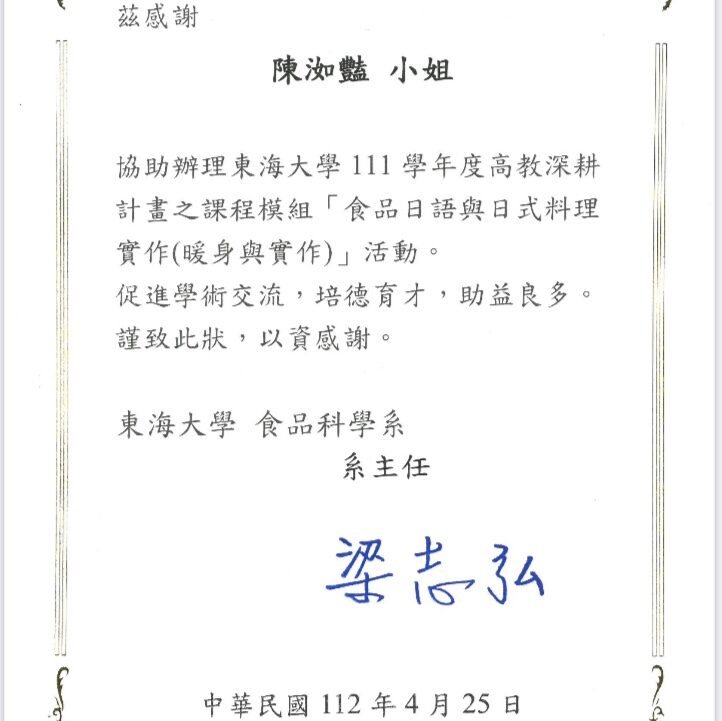 茲感謝
陳洳豔 小姐
協助辦理東海大學 111 學年度高教深耕
計畫之課程模組「食品日語與日式料理
實作(暖身與實作)」活動。
促進學術交流，培德育才，助益良多。
謹致此狀，以資感謝。
東海大學 食品科學系
系主任
梁志弘
中華民國 112 年 4 月 25 日